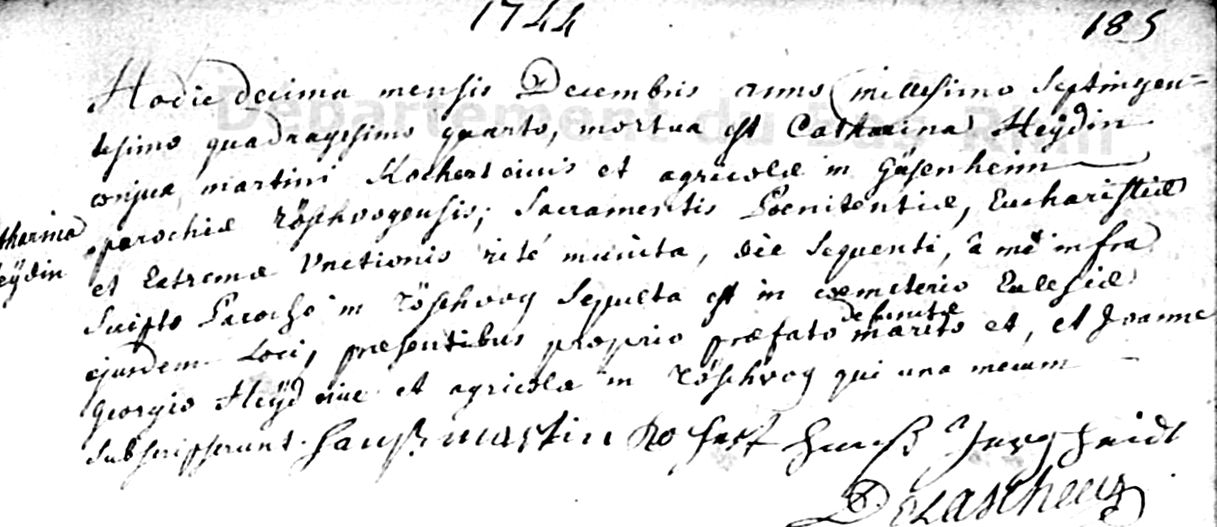 1744
185
Hodie decima mensis Decembris anno millesimo Septingen=
tesimo quadragesimo quarto, mortua est Catharina Heÿdin
conjux martini Kocher civis et agricolæ in Güsenheim
parochiæ Röschvogensis; Sacramentis Poenitentiæ, Eucharistiæ
Catharina
Heÿdin
et Extremæ Unctionis rité munita, die sequenti, à me infra
Scripto Parocho in Röschvog Sepulta est in coemeterio Ecclesiæ
ejusdem Loci, præsentibus proprio præfato defunctæ marito et, et Joanne
georgio Heÿd cive et agricolæ in Röschvog qui una mecum
Subscripserunt. hanß martin
hanß Jerg heidt